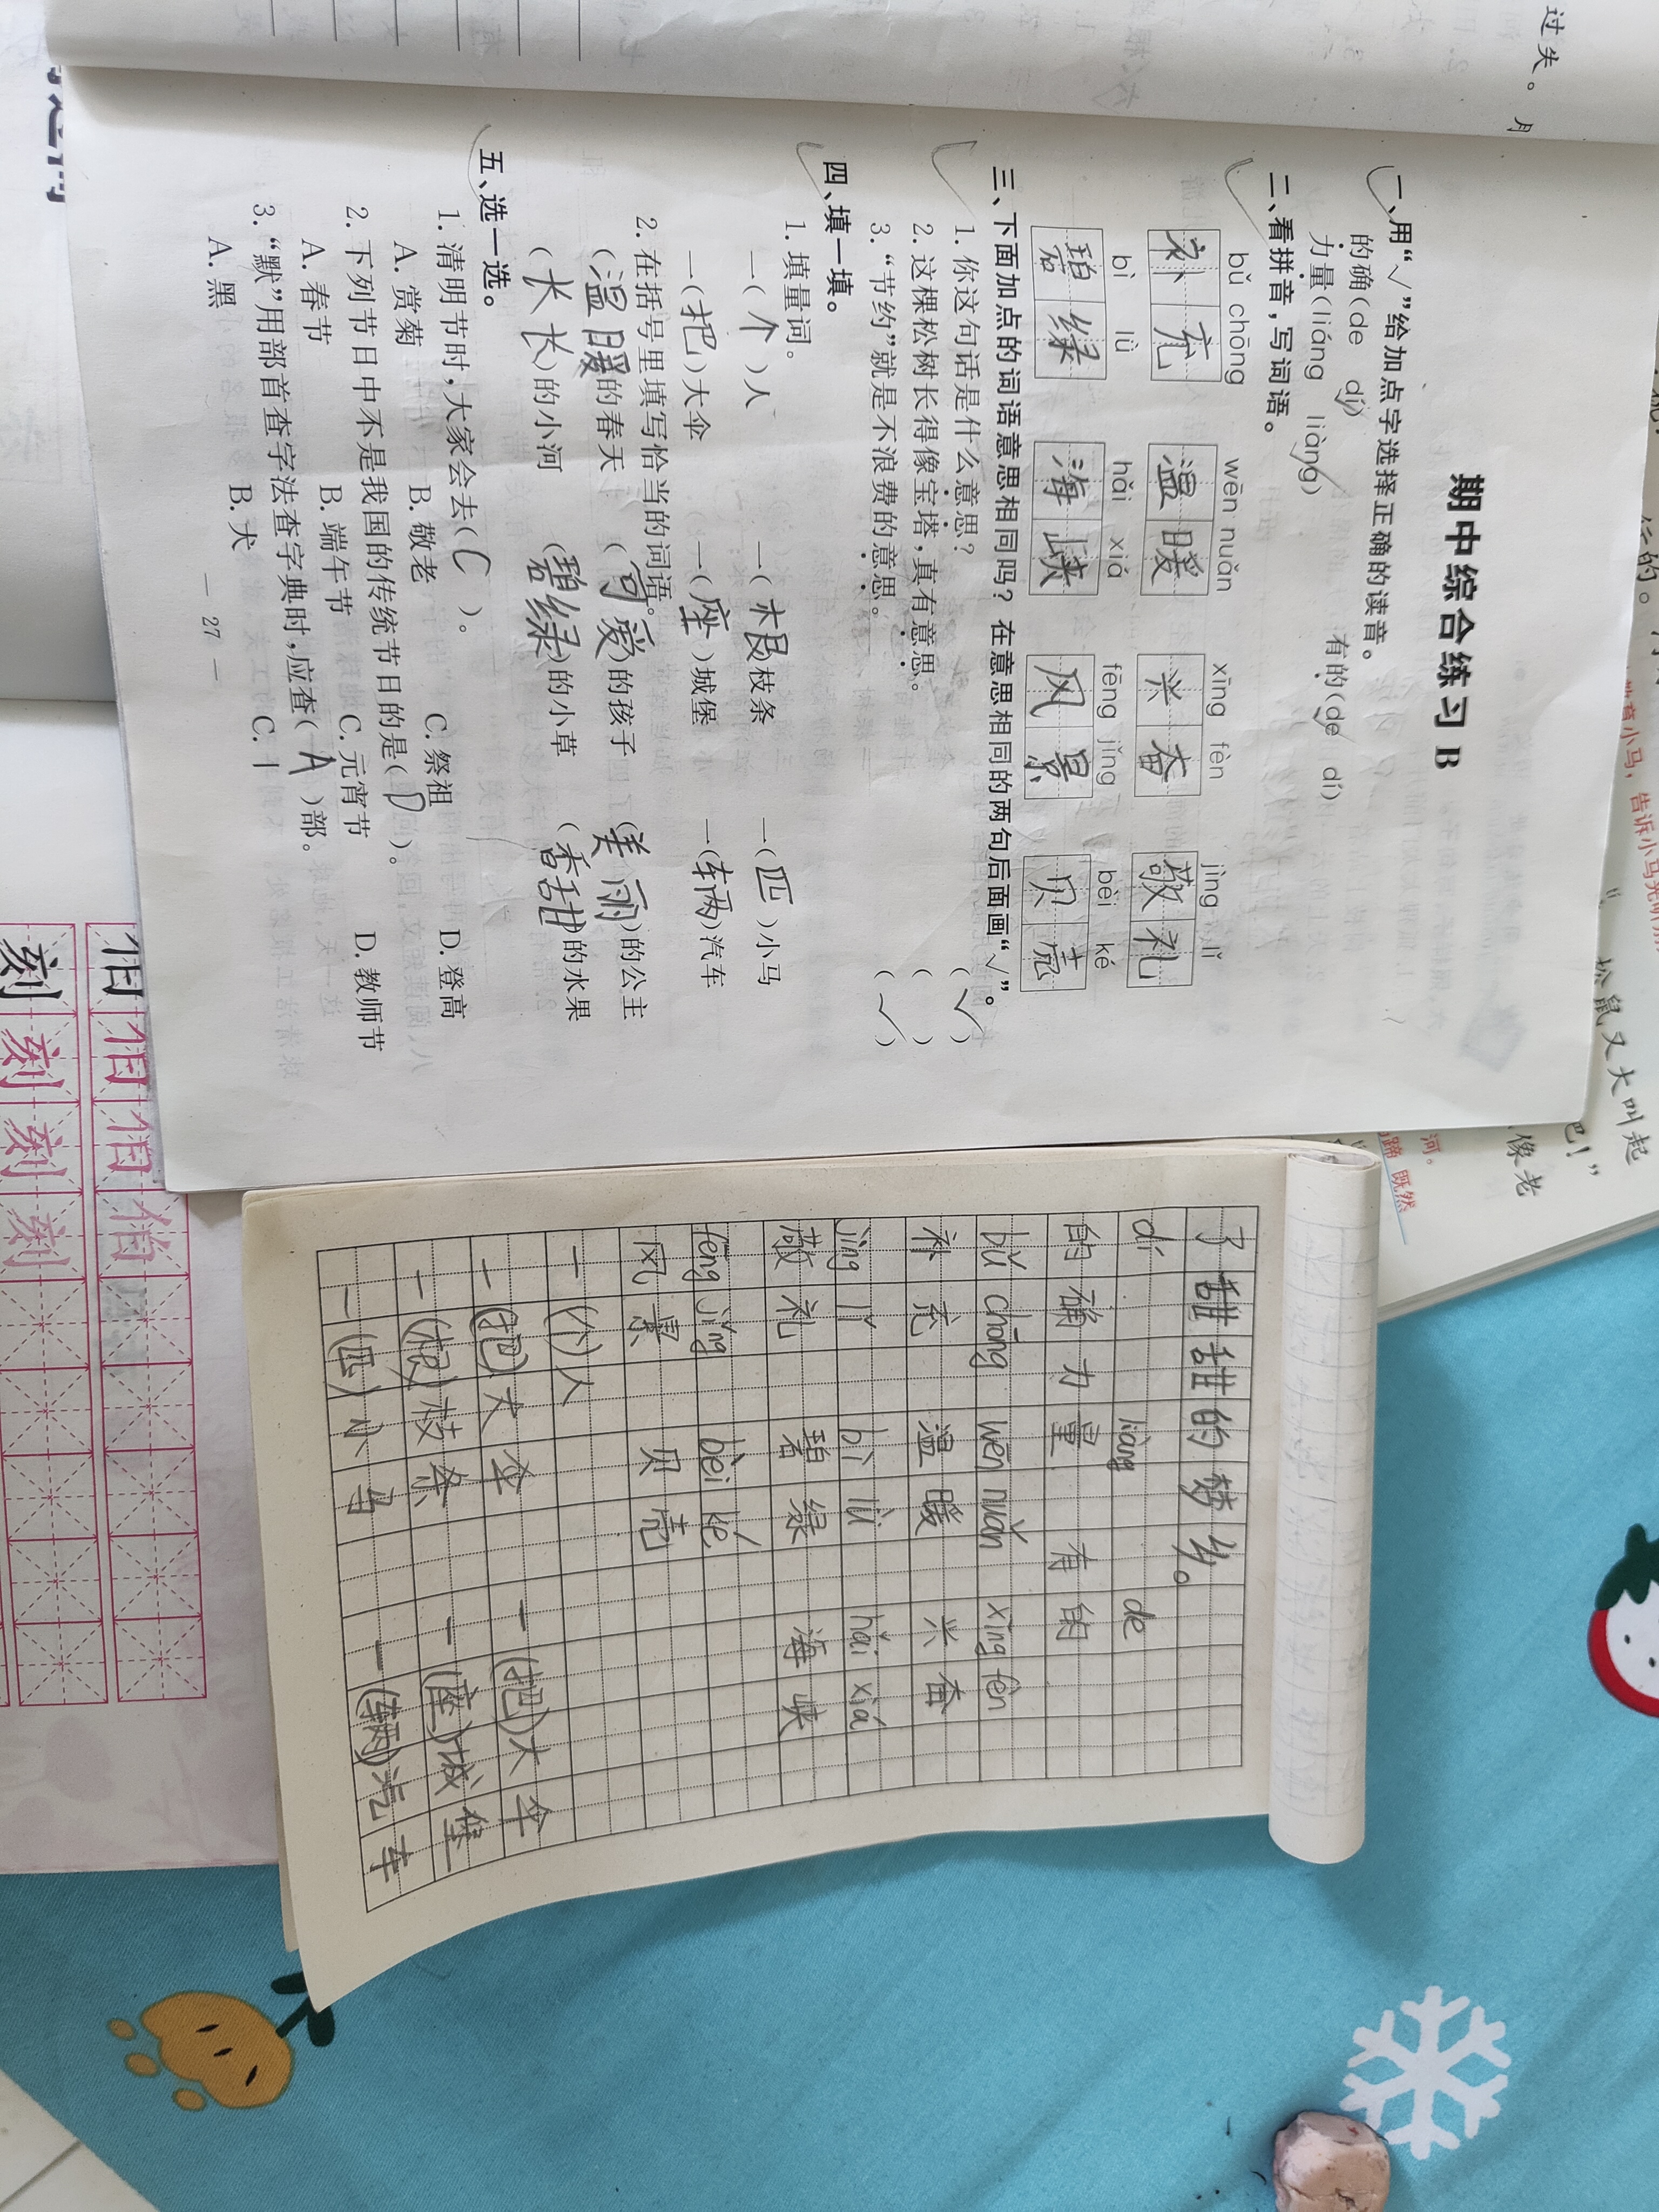 过失。
期中综合练习 B
一、用“√”给加点字选择正确的读音。
的确(de dí) 有的(de dí)
力量(liáng liàng)
二、看拼音，写词语。
bǔ chōng wēn nuǎn xīng fèn jìng lǐ
补充 温暖 兴奋 敬礼
bì lǜ hǎi xiá fēng jǐng bèi ké
碧绿 海峡 风景 贝壳
三、下面加点的词语意思相同吗？在意思相同的两句后面画“√”。
1. 你这句话是什么意思？ (√)
2. 这棵松树长得像宝塔，真有意思。 ( )
3. “节约”就是不浪费的意思。 (√)
四、填一填。
1. 填量词。
一(个)人 一(根)枝条 一(匹)小马
一(把)大伞 一(座)城堡 一(辆)汽车
2. 在括号里填写恰当的词语。
(温暖)的春天 (可爱)的孩子 (美丽)的公主
(长长)的小河 (碧绿)的小草 (香甜)的水果
五、选一选。
1. 清明节时，大家会去(C)。
A. 赏菊 B. 敬老 C. 祭祖 D. 登高
2. 下列节日中不是我国的传统节日的是(D)。
A. 春节 B. 端午节 C. 元宵节 D. 教师节
3. “默”用部首查字法查字典时，应查(A)部。
A. 黑 B. 犬 C. 卜
— 27 —
了甜甜的梦乡。
dí liàng de
的确 力量 有的
bǔ chōng wēn nuǎn xīng fèn
补充 温暖 兴奋
jìng lǐ bì lǜ hǎi xiá
敬礼 碧绿 海峡
fēng jǐng bèi ké
风景 贝壳
一(个)人
一(把)大伞 一(把)大伞
一(根)枝条 一(座)城堡
一(匹)小马 一(辆)汽车
松鼠又大叫起
吧！”
像老
河。
既然
伯 伯 伯 伯
刻 刻 刻 刻